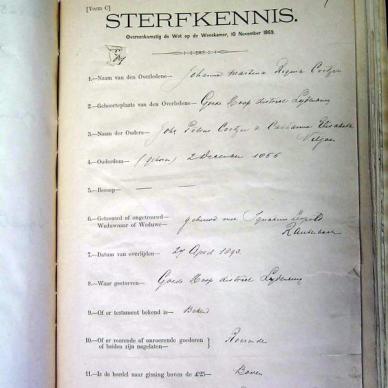 [Vorm C]
STERFKENNIS.
Overeenkomstig de Wet op de Weeskamer, 10 November 1869.
1.—Naam van den Overledene— Johanna Martina Regina Coetzer
2.—Geboorteplaats van den Overledene— Goede Hoop district Lydenburg
3.—Namen der Ouders— Johs Petrus Coetzer &
4.—Ouderdom— (geboren) 2 December 1866
5.—Beroep—
6.—Getrouwd of ongetrouwd— gehuwd met Ignatius Leopold
Weduwnaar of Weduwe—
7.—Datum van overlijden— 27 April 1893
8.—Waar gestorven— Goede Hoop district Lydenburg
9.—Of er testament bekend is— Bekend
10.—Of er roerende of onroerende goederen of beiden zijn nagelaten— Roerende
11.—Is de boedel naar gissing boven de £25— Boven